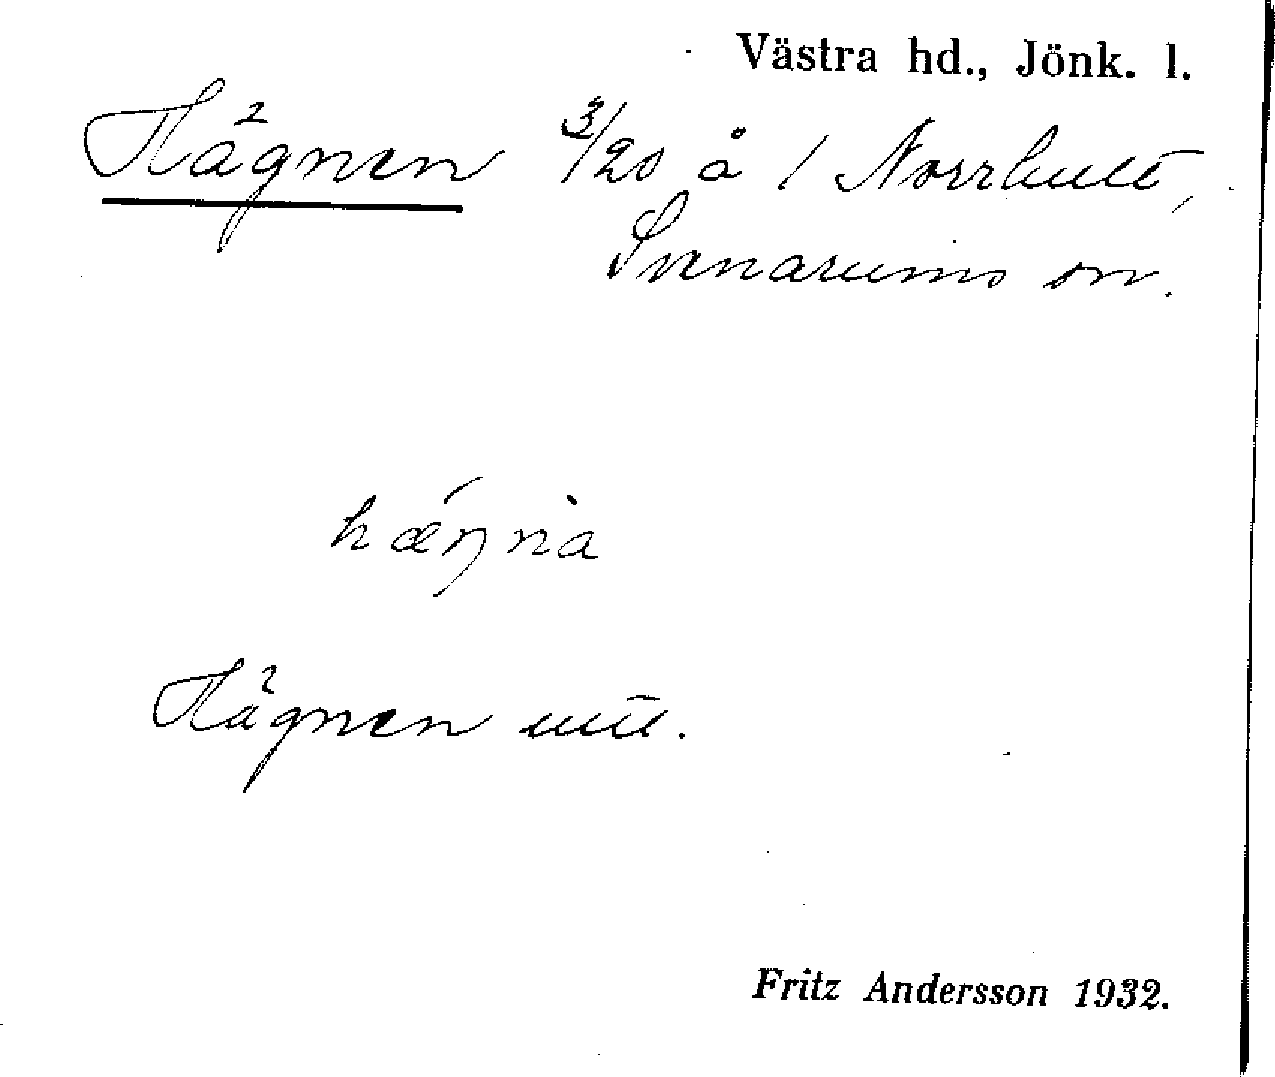 Västra hd., Jönk. l.
Hägnen 3/20 å 1 Norrhult,
Svenarums sn.
hǽŋnà
Hägnen utt.
Fritz Andersson 1932.